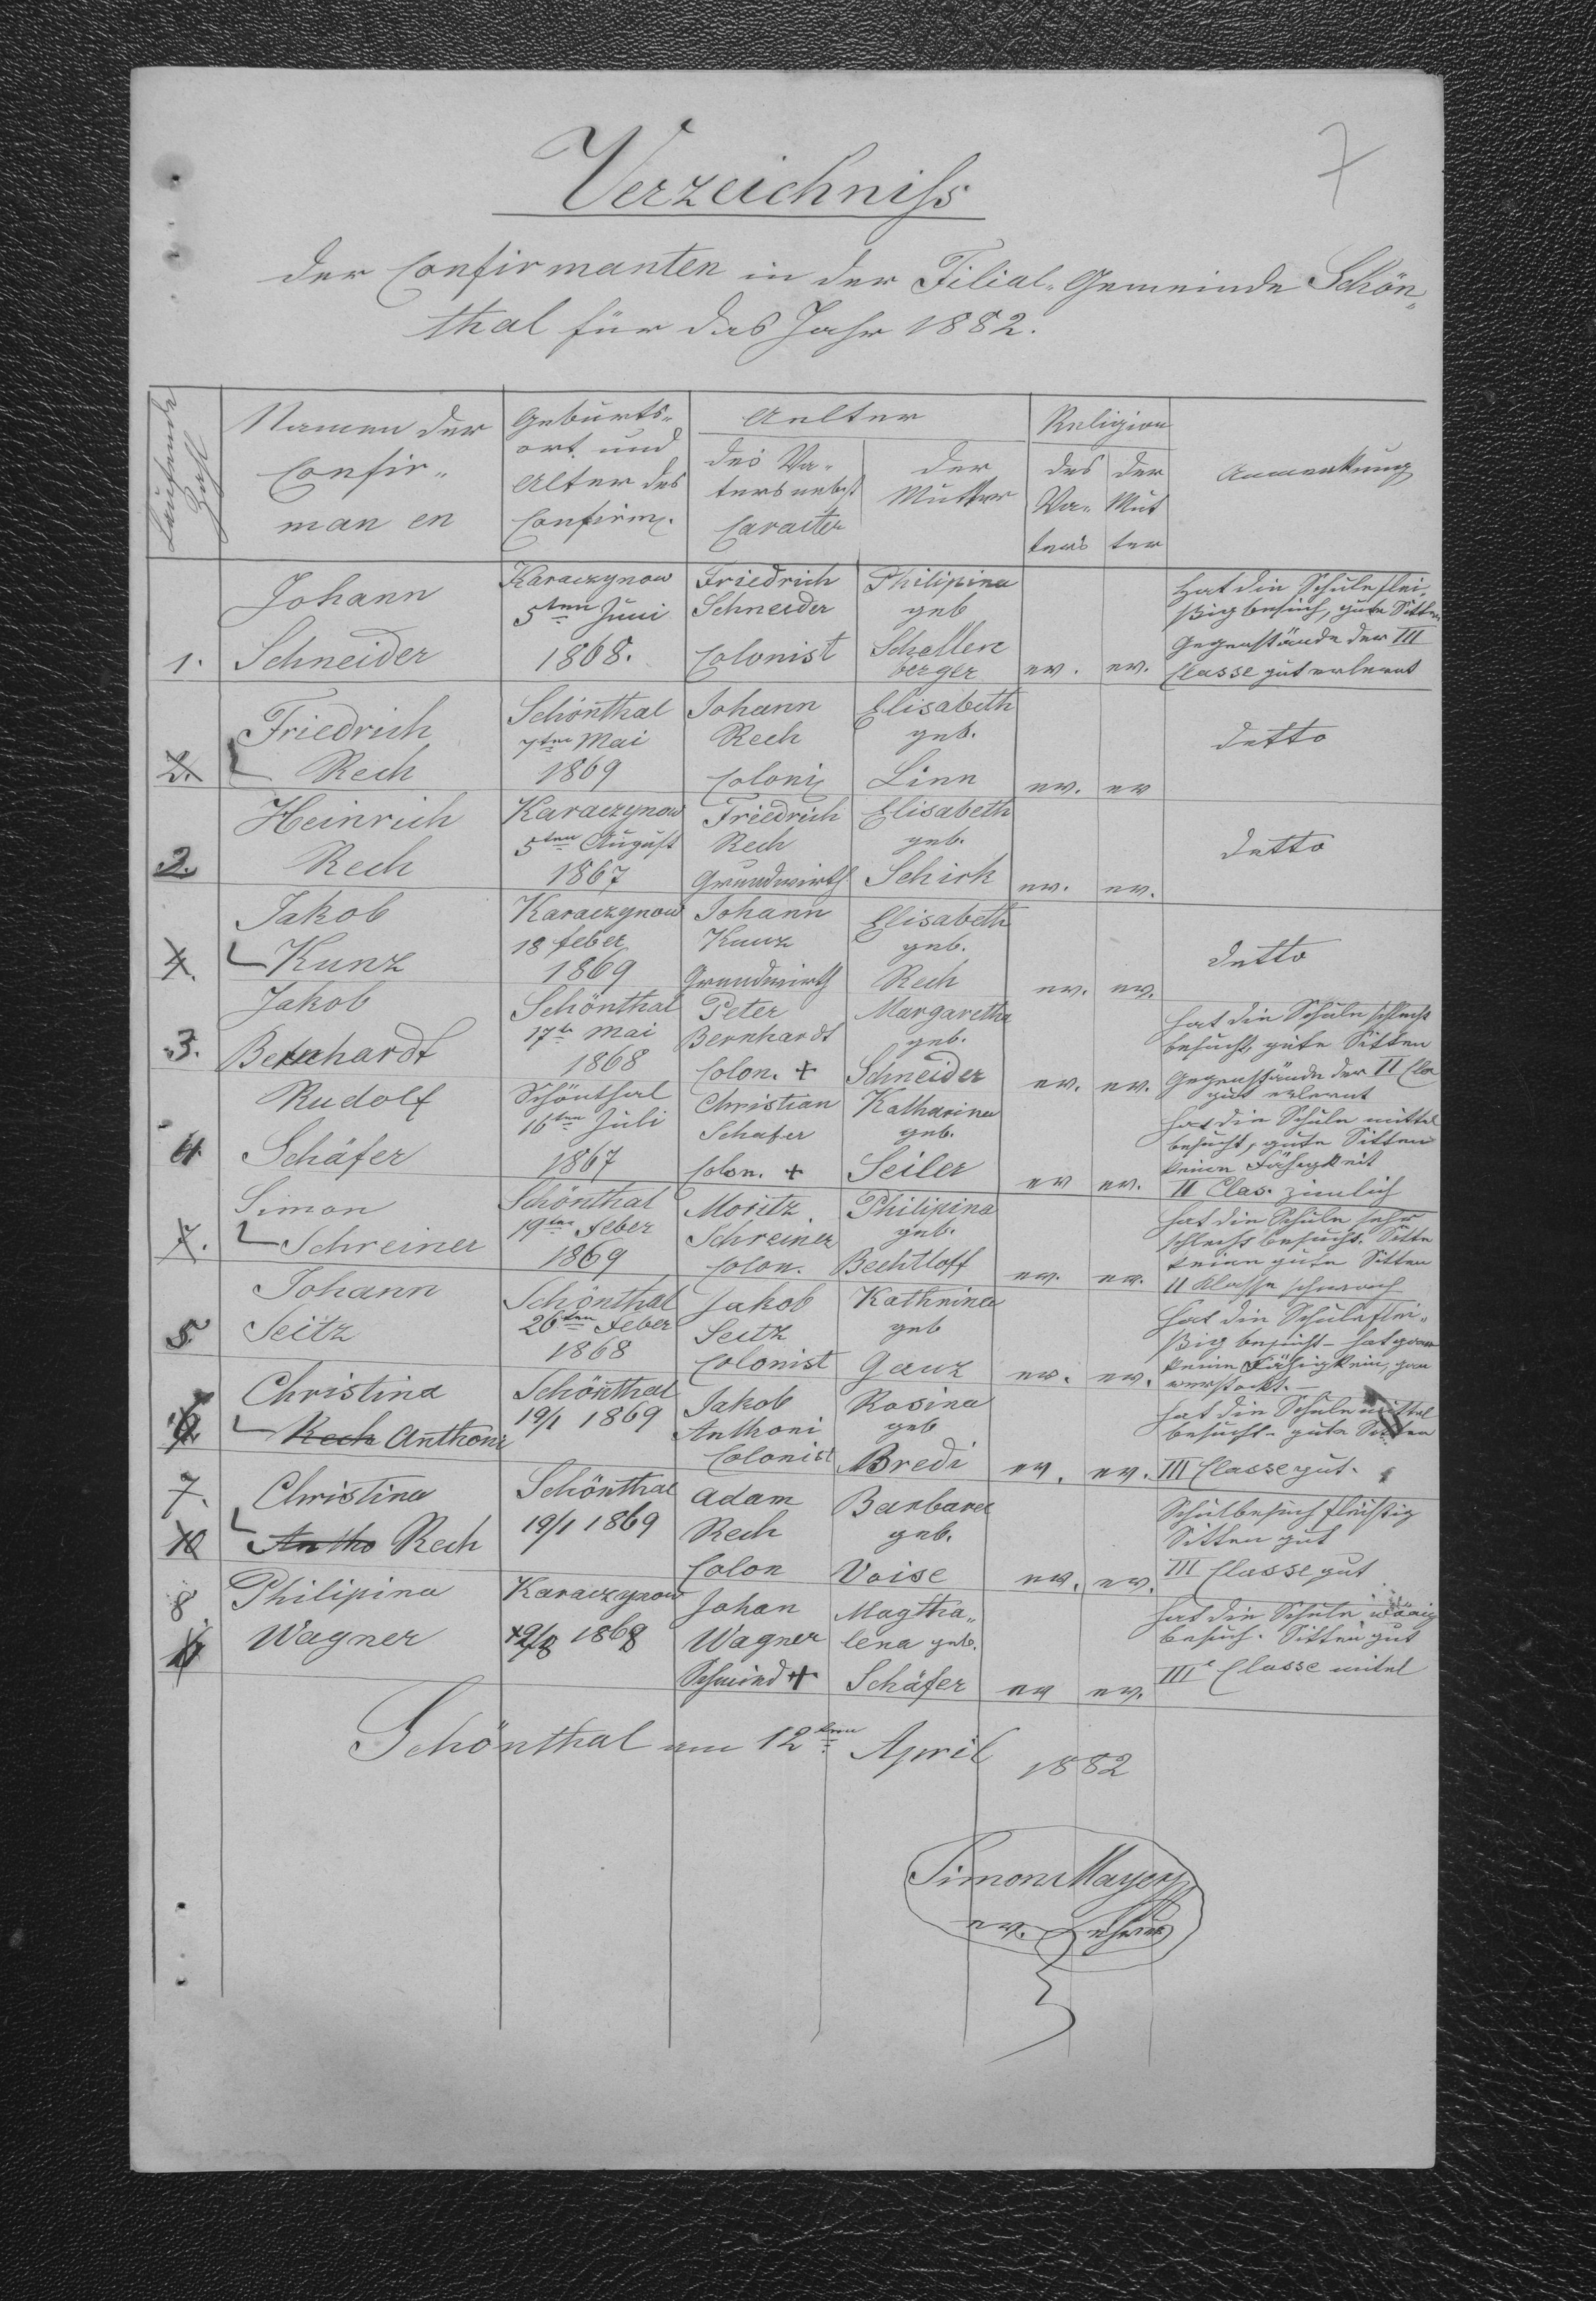 7
Verzeichniss
der Confirmanten in der Filial-Gemeinde Schön-
thal für das Jahr 1882.
Laufende Zahl
Namen der
Confir-
man en
Geburts-
ort und
Alter des
Confirm.
Aelter
des Va-
ters nebst
Caracter
der
Mutter
Religion
des
Va-
ters
der
Mut
ter
Anmerkung
1.
Johann
Schneider
Karaczynow
5ten Juni
1868.
Friedrich
Schneider
Colonist
Philipina
geb
Schallen
berger
ev.
ev.
Hat die Schule flei-
ßig besuch, gute Sitten
Gegenstände der III
Classe gut erlernt
2.
Friedrich
Rech
Schönthal
7ten Mai
1869
Johann
Rech
Coloni
Elisabeth
geb.
Linn
ev.
ev
detto
2.
Heinrich
Rech
Karaczynow
5ten August
1867
Friedrich
Rech
Grundwirth
Elisabeth
geb.
Schirk
ev.
ev.
detto
4.
Jakob
Kunz
Karaczynow
18 feber
1869
Johann
Kunz
Grundwirth
Elisabeth
geb.
Rech
ev.
ev.
detto
3.
Jakob
Bernhardt
Schönthal
17te Mai
1868
Peter
Bernhardt
Colon. +
Margaretha
geb.
Schneider
ev.
ev.
hat die Schule schlecht
besucht, gute Sitten
Gegenstände der II Cla
gut erlernt
4
Rudolf
Schäfer
Schönthal
16ten Juli
1867
Christian
Schafer
Colon. +
Katharina
geb.
Seiler
ev
ev.
hat die Schule mittel
besucht, gute Sitten
keine Fähigkeit
II Clas. zimlich
7.
Simon
Schreiner
Schönthal
19ten Feber
1869
Moritz
Schreiner
Colon.
Philipina
geb.
Bechtloff
ev.
ev.
hat die Schule sehr
schlecht besucht. Sitte
keine gute Sitten
II Klasse schwach
5.
Johann
Seitz
Schönthal
26ten Feber
1868
Jakob
Seitz
Colonist
Kathrina
geb
Ganz
ev.
ev.
hat die Schule flei-
ßig besucht - hat gar
keine Fähigkein, gan
verstockt.-
6.
Christina
Rech Anthoni
Schönthal
19/1 1869
Jakob
Anthoni
Colonist
Rosina
geb
Bredi
ev.
ev.
hat die Schule mittel
besucht- gute Sitten
III Classe gut.
7.
10
Christina
Antho Rech
Schönthal
19/1 1869
Adam
Rech
Colon
Barbara
geb.
Voise
ev.
ev.
Schulbesuch fleißig
Sitten gut
III Classe gut
8
Philipina
Wagner
Karaczynow
1868
Johan
Wagner
Schmied +
Magtha-
lena geb.
Schäfer
ev
ev.
hat die Schule wänig
besuch. Sitten gut
IIIe Classe mitel
Schönthal am 12ten April 1882
Simon Mayer
ev. Lehrer